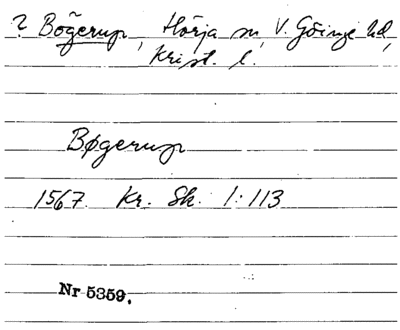 ? Bögerup, Hörja sn, V. Göinge hd,
Krist. l.
Bøgerup
1567 Kr. Sk. 1:113
Nr 5359.